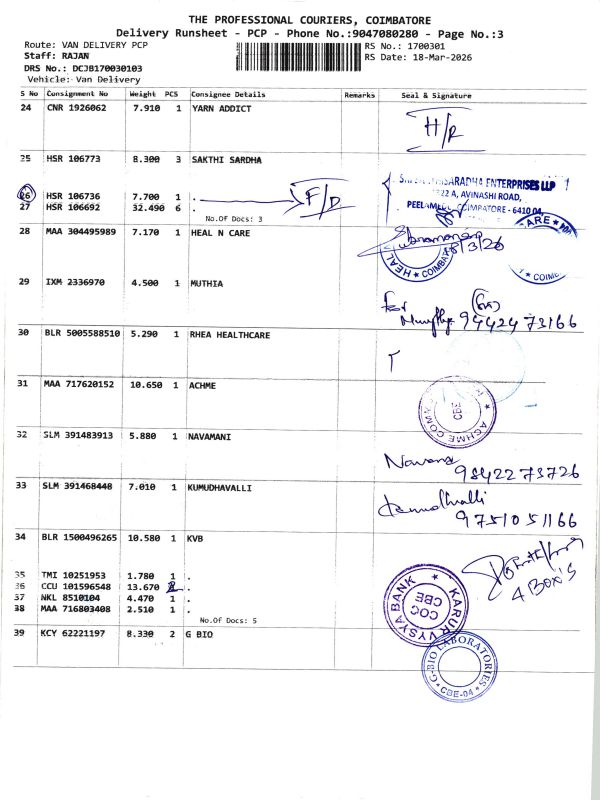 THE PROFESSIONAL COURIERS, COIMBATORE
Delivery Runsheet - PCP - Phone No.:9047080280 - Page No.:3
Route: VAN DELIVERY PCP RS No.: 1700301
Staff: RAJAN RS Date: 18-Mar-2026
DRS No.: DCJB170030103
Vehicle: Van Delivery
S No Consignment No Weight PCS Consignee Details Remarks Seal & Signature
24 CNR 1926062 7.910 1 YARN ADDICT
H/R
25 HSR 106773 8.300 3 SAKTHI SARDHA
26 HSR 106736 7.700 1 . F/D
27 HSR 106692 32.490 6 .
No.Of Docs: 3
SARADHA ENTERPRISES LLP
AVINASHI ROAD,
COIMBATORE - 6410 04
28 MAA 304495989 7.170 1 HEAL N CARE
18/3/26
HEAL COIMBA
ARE
COIMB
29 IXM 2336970 4.500 1 MUTHIA
For
94424 73166
30 BLR 5005588510 5.290 1 RHEA HEALTHCARE
31 MAA 717620152 10.650 1 ACHME
ACHME COMM
CBE
32 SLM 391483913 5.880 1 NAVAMANI
98422 73726
33 SLM 391468448 7.010 1 KUMUDHAVALLI
97510 51166
34 BLR 1500496265 10.580 1 KVB
4 BOX'S
35 TMI 10251953 1.780 1 .
36 CCU 101596548 13.670 .
37 NKL 8510104 4.470 1 .
38 MAA 716803408 2.510 1 .
No.Of Docs: 5
KARUR VYSYA BANK
COC
CBE
39 KCY 62221197 8.330 2 G BIO
G-BIO LABORATORIES
CBE-04